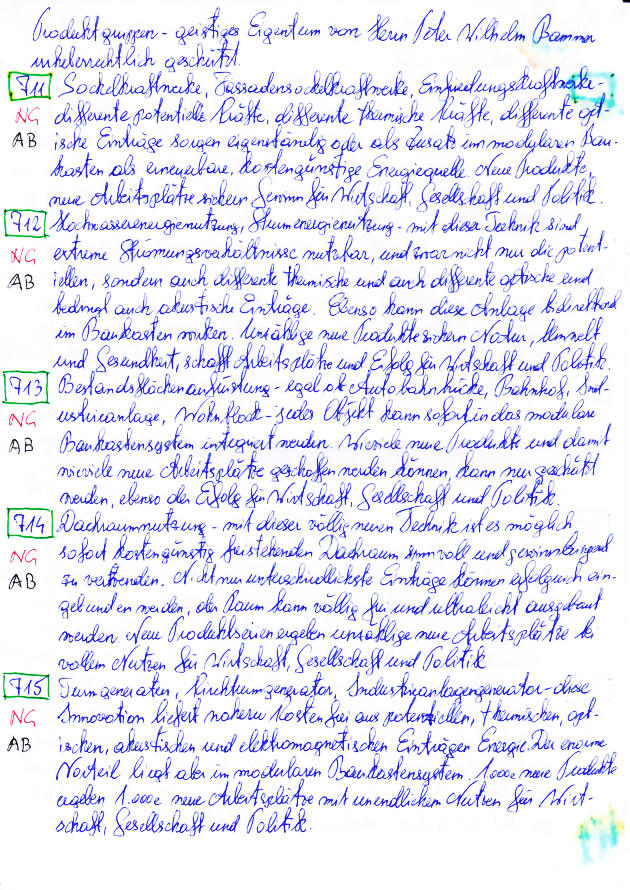 Produktgruppen - geistiges Eigentum von Herrn Peter Wilhelm Bammer
urheberrechtlich geschützt.
711 Sockelkraftwerke, Fassadensockelkraftwerke, Einfriedungskraftwerke-
NG differente potentielle Kräfte, differente thermische Kräfte, differente opt-
AB ische Einträge sorgen eigenständig oder als Zusatz im modularen Bau-
kasten als erneuerbare, kostengünstige Energiequelle. Neue Produkte,
neue Arbeitsplätze sichern Gewinn für Wirtschaft, Gesellschaft und Politik.
712 Hochwasserenergienutzung, Sturmenergienutzung - mit dieser Technik sind
NG extreme Strömungsverhältnisse nutzbar, und zwar nicht nur die potent-
AB iellen, sondern auch differente thermische und auch differente optische und
bedingt auch akustische Einträge. Ebenso kann diese Anlage bidirektional
im Baukasten wirken. Unzählige neue Produkte sichern Natur, Umwelt
und Gesundheit, schafft Arbeitsplätze und Erfolg für Wirtschaft und Politik.
713 Bestandsflächenaufrüstung - egal ob Autobahnbrücke, Bahnhof, Ind-
NG ustrieanlage, Wohnblock - jedes Objekt kann sofort in das modulare
AB Baukastensystem integriert werden. Wieviele neue Produkte und damit
wieviele neue Arbeitsplätze geschaffen werden können, kann nur geschätzt
werden, ebenso der Erfolg für Wirtschaft, Gesellschaft und Politik.
714 Dachraumnutzung - mit dieser völlig neuen Technik ist es möglich
NG sofort kostengünstig freistehenden Dachraum sinnvoll und gewinnbringend
AB zu verwenden. Nicht nur unterschiedlichste Einträge können erfolgreich ein-
gebunden werden, der Raum kann völlig frei und ultraleicht ausgebaut
werden. Neue Produktserien ergeben unzählige neue Arbeitsplätze bei
vollem Nutzen für Wirtschaft, Gesellschaft und Politik
715 Turmgeneratoren, Kirchturmgenerator, Industrieanlagengenerator - diese
NG Innovation liefert nahezu kostenfrei aus potentiellen, thermischen, opt-
AB ischen, akustischen und elektromagnetischen Einträgen Energie. Der enorme
Vorteil liegt aber im modularen Baukastensystem. 1.000e neue Produkte
ergeben 1.000e neue Arbeitsplätze mit unendlichem Nutzen für Wirt-
schaft, Gesellschaft und Politik.